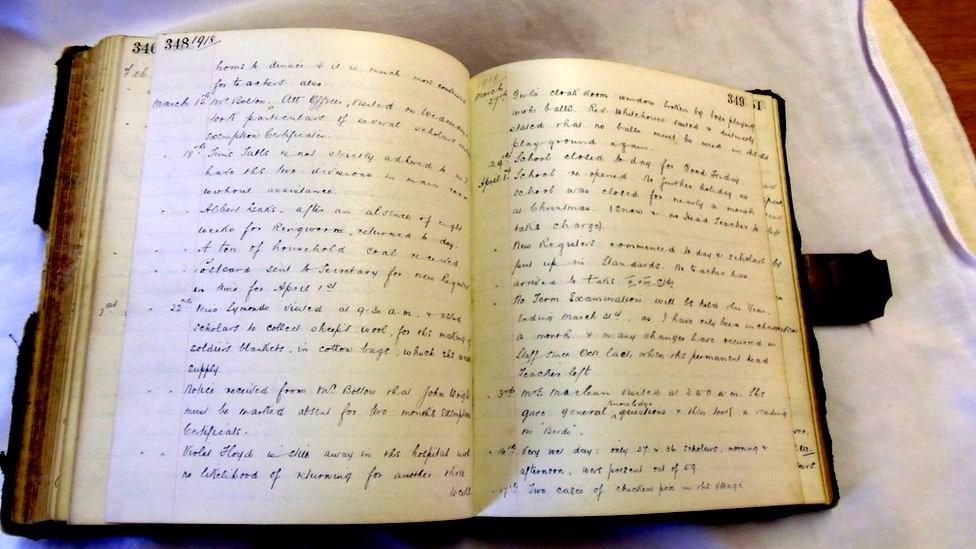 346
Feb
348 1918
home to dinner & it is much more convenient
for teachers also.
March 15th Mr Bolton, Att Officer, visited on Wednesday
took particulars of several scholars
exemption Certificates.
18th Time Table is not strictly adhered to as I
have the two divisions in main room
without assistance.
Albert Leaks, after an absence of eight
weeks for Ringworm, returned to day.
A ton of household coal received
Postcard sent to Secretary for new Registers
in time for April 1st
22nd Miss Symonds visited at 9.30 a.m. & asked
scholars to collect sheep's wool, for the making of
soldiers blankets, in cotton bags, which she would
supply.
Notice received from Mr Bolton that John Wright
must be marked absent for two months exemption
Certificate.
Violet Floyd is still away in the hospital with
no likelihood of returning for another three
weeks
1918
349
51
March 27th Girls cloak room window broken by boys playing
with balls. Rev. Whitehouse visited & distinctly
stated that no balls must be used in the
play-ground again.
29th School closed to day for Good Friday
April 1st School re-opened. No further holiday as
school was closed for nearly a month
at Christmas. (Snow & no Head Teacher to
take charge).
New Registers commenced to day & scholars
put up in Standards. No teacher has
arrived to take II & III Stds
No Term Examination will be held this Year,
ending March 31st, as I have only been in charge
a month & many changes have occurred in
Staff since Oct last, when the permanent Head
Teacher left.
3rd Mrs Maclean visited at a.m. She
gave general knowledge questions & then took a reading
on "Birds".
16th Very wet day: only 37 & 36 scholars, morning &
afternoon, were present out of 59.
17th Two cases of chicken pox in the village